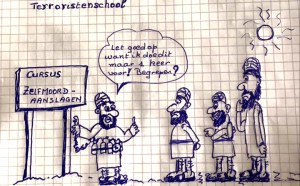 Terroristenschool
CURSUS
ZELFMOORD-
AANSLAGEN
Let goed op
want ik doe dit
maar 1 keer
voor! Begrepen?